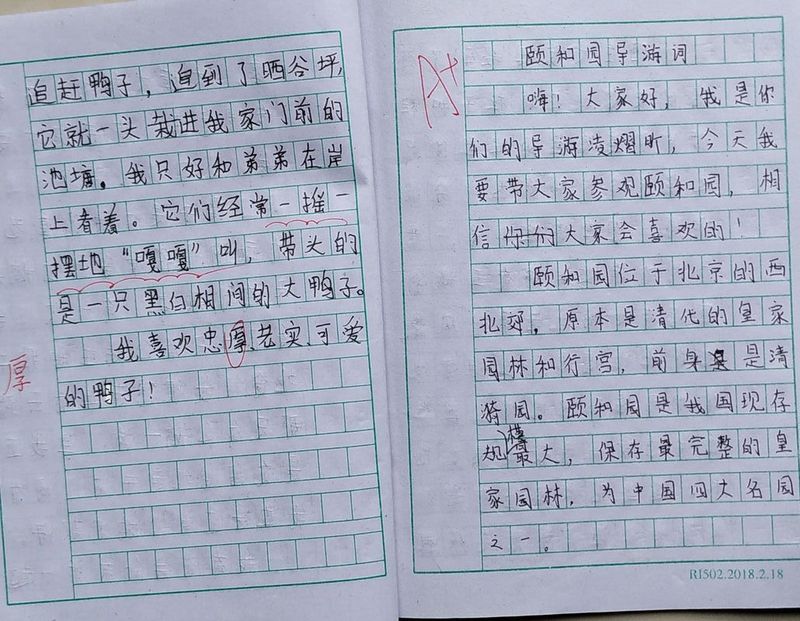 追赶鸭子，追到了晒谷坪，
它就一头栽进我家门前的
池塘。我只好和弟弟在岸
上看着。它们经常一摇一
摆地“嘎嘎”叫，带头的
是一只黑白相间的大鸭子。
我喜欢忠厚、老实、可爱
的鸭子！
厚
A+
颐和园导游词
嗨！大家好，我是你
们的导游凌熠昕，今天我
要带大家参观颐和园，相
信你们大家会喜欢的！
颐和园位于北京的西
北郊，原本是清代的皇家
园林和行宫，前身是清
漪园。颐和园是我国现存
规模最大，保存最完整的皇
家园林，为中国四大名园
之一。
RI502.2018.2.18